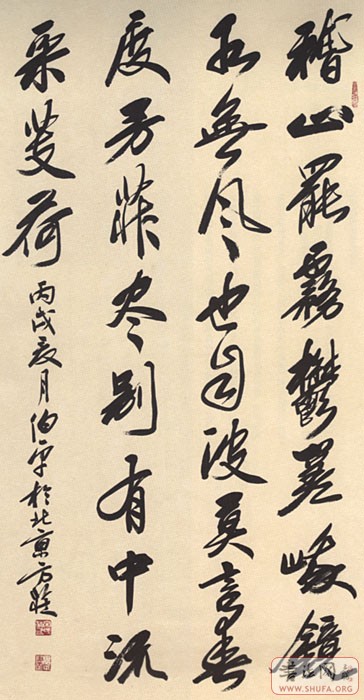 稽山罷霧鬱嵯峨鏡
水無風也自波莫言春
度芳菲尽别有中流
采芰荷
丙戌夏月伯平於北京方莊
书法网
WWW.SHUFA.ORG